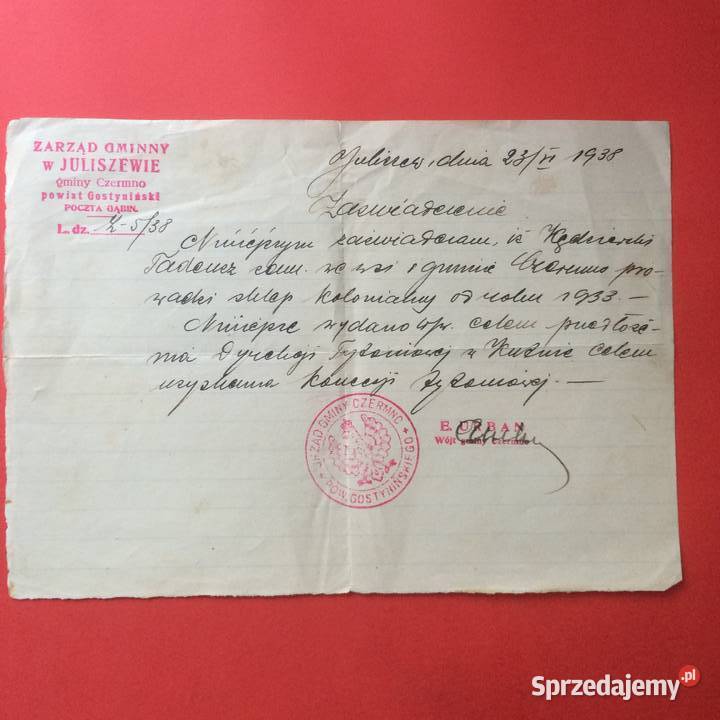 ZARZĄD GMINNY
w JULISZEWIE
gminy Czermno
powiat Gostyniński
POCZTA GĄBIN.
L. dz. 2-5/38
Juliszew, dnia 23/VI 1938
Zaświadczenie
Niniejszym zaświadczam, iż
Tadeusz zam. we wsi i gminie Czermno pro-
wadzi sklep kolonialny od roku 1933.—
Niniejsze wydano w/w. celem przedłoże-
nia Dyrekcji Tytoniowej w celem
uzyskania koncesji tytoniowej.—
URZĄD GMINY CZERMNO
POW. GOSTYNIŃSKIEGO
E. URBAN
Wójt gminy Czermno
Sprzedajemy.pl